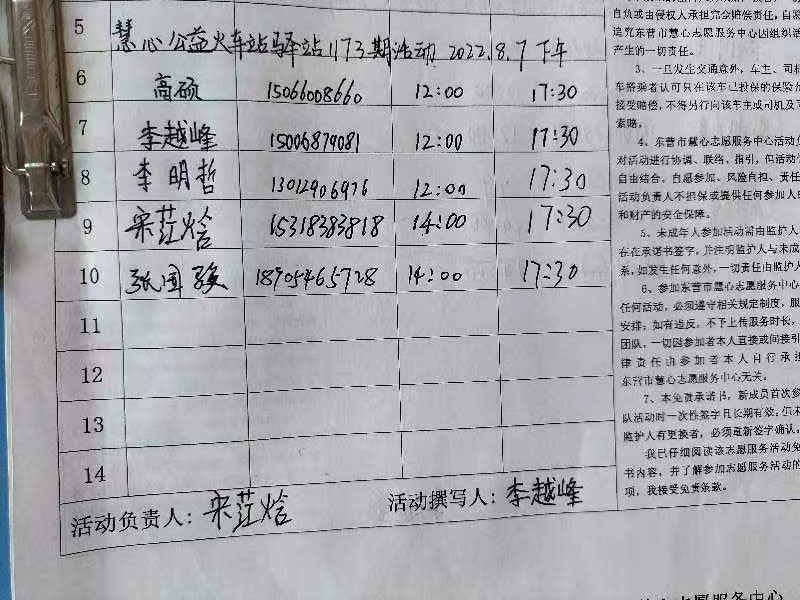 5 慧心公益火车站驿站1173期活动 2022.8.7 下午
6 高硕 15066008660 12:00 17:30
7 李越峰 15006879081 12:00 17:30
8 李明哲 13012906976 12:00 17:30
9 宋茳焓 15318383818 14:00 17:30
10 张国骏 18905465728 14:00 17:30
11
12
13
14
活动负责人：宋茳焓 活动撰写人：李越峰
自负或由侵权人承担完全赔偿责任，自愿
追究东营市慧心志愿服务中心因组织活
产生的一切责任。
3、一旦发生交通意外，车主、司机
车搭乘者认可只在该车已投保的保险
接受赔偿，不得另行向该车主或司机及
索赔，
4、东营市慧心志愿服务中心活动负
对活动进行协调、联络、指引，但活动
自由结合、自愿参加、风险自担、责任
活动负责人不担保或提供任何参加人
和财产的安全保障。
5、未成年人参加活动需由监护人
在在承诺书签字，并注明监护人与未成
系，如发生任何意外，一切责任由监护人
6、参加东营市慧心志愿服务中心
任何活动，必须遵守相关规定制度，服
安排；如有违反，不予上传服务时长，
团队，一切因参加者本人直接或间接引
律责任由参加者本人自行承担
东营市慧心志愿服务中心无关。
7、本免责承诺书，新成员首次参
队活动时一次性签字且长期有效；但未
监护人有更换者，必须重新签字确认，
我已仔细阅读该志愿服务活动免
书内容，并了解参加志愿服务活动的
项，我接受免责条款。
志愿服务中心